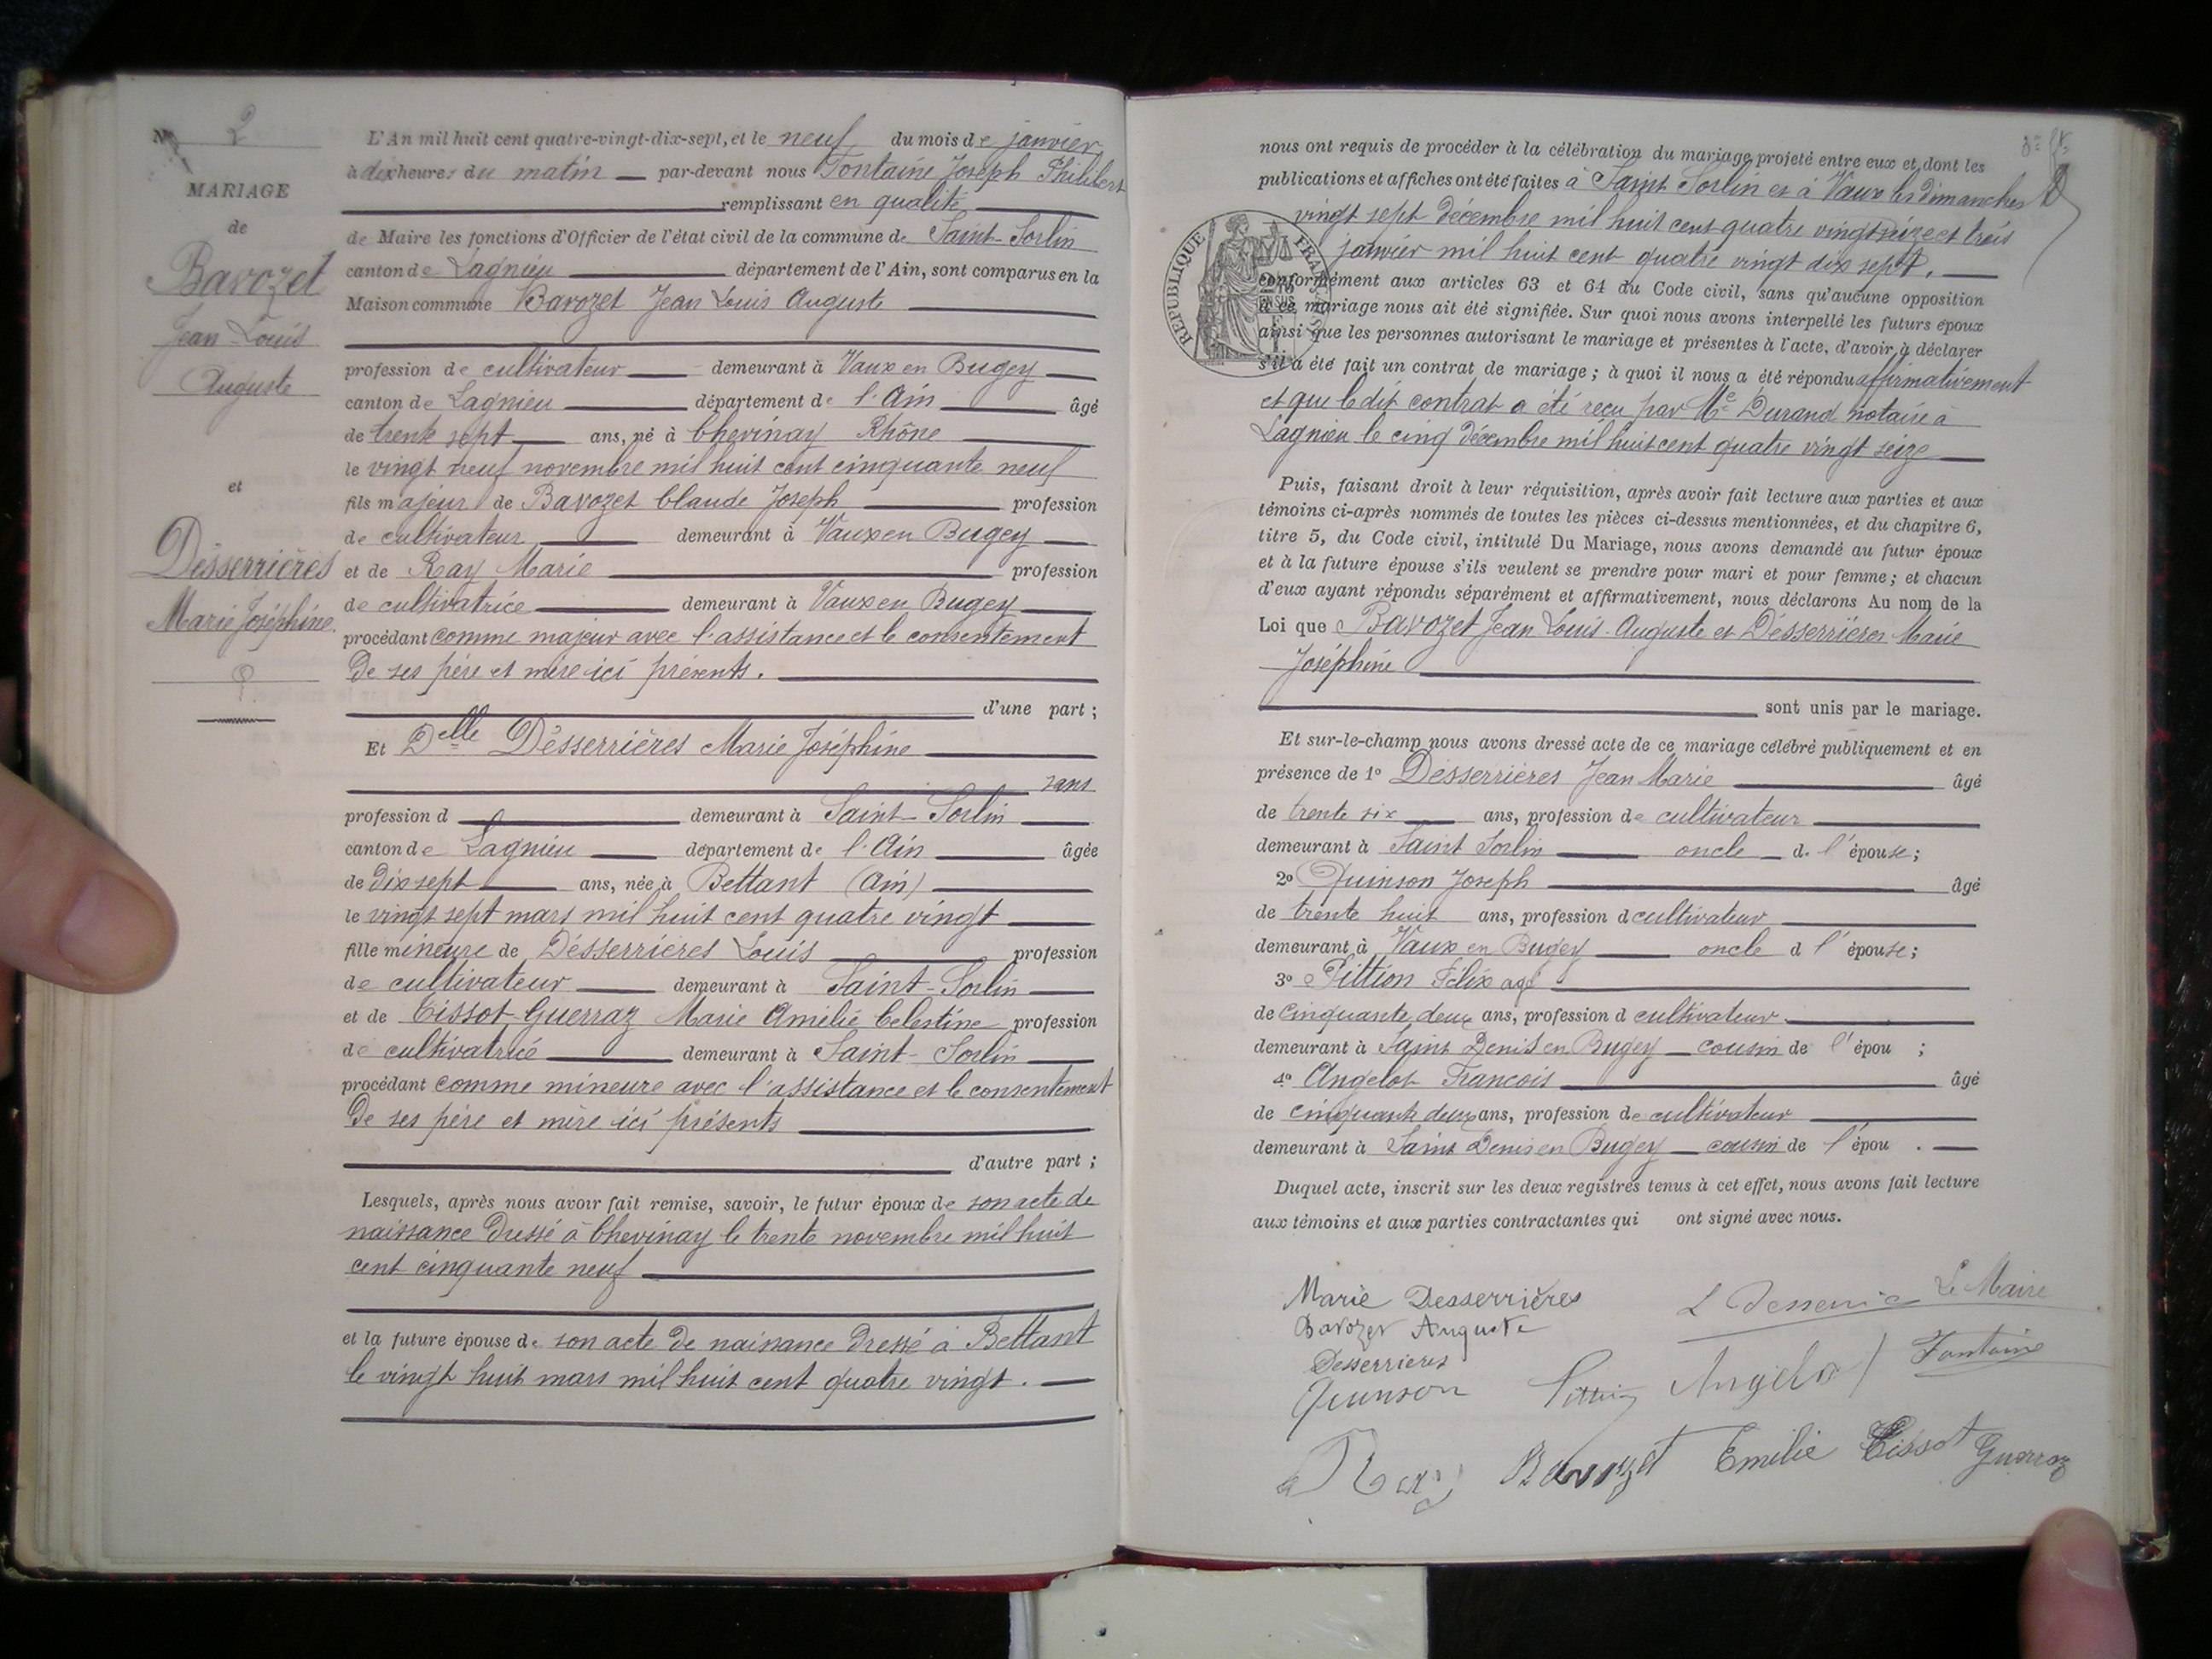 N° 2
MARIAGE
de
Bavozet
Jean Louis
Auguste
et
Désserrières
Marie Joséphine
L'An mil huit cent quatre-vingt-dix-sept, et le neuf du mois de janvier
à dix heures du matin par-devant nous Fontaine Joseph Philibert
remplissant en qualité
de Maire les fonctions d'Officier de l'état civil de la commune de Saint-Sorlin
canton de Lagnieu département de l'Ain, sont comparus en la
Maison commune Bavozet Jean Louis Auguste
profession de cultivateur demeurant à Vaux en Bugey
canton de Lagnieu département de l'Ain âgé
de trente sept ans, né à Chevinay Rhône
le vingt neuf novembre mil huit cent cinquante neuf
fils majeur de Bavozet Claude Joseph profession
de cultivateur demeurant à Vaux en Bugey
et de Ray Marie profession
de cultivatrice demeurant à Vaux en Bugey
procédant comme majeur avec l'assistance et le consentement
de ses père et mère ici présents.
d'une part ;
Et Delle Désserrières Marie Joséphine
sans
profession d demeurant à Saint-Sorlin
canton de Lagnieu département de l'Ain âgée
de dix sept ans, née à Bettant (Ain)
le vingt sept mars mil huit cent quatre vingt
fille mineure de Désserrières Louis profession
de cultivateur demeurant à Saint-Sorlin
et de Tissot-Guerraz Marie Amelie Celestine profession
de cultivatrice demeurant à Saint-Sorlin
procédant comme mineure avec l'assistance et le consentement
de ses père et mère ici présents
d'autre part ;
Lesquels, après nous avoir fait remise, savoir, le futur époux de son acte de
naissance dressé à Chevinay le trente novembre mil huit
cent cinquante neuf
et la future épouse de son acte de naissance dressé à Bettant
le vingt huit mars mil huit cent quatre vingt.
nous ont requis de procéder à la célébration du mariage projeté entre eux et dont les
publications et affiches ont été faites à Saint Sorlin et à Vaux les dimanches
vingt sept décembre mil huit cent quatre vingt seize et trois
janvier mil huit cent quatre vingt dix sept.
REPUBLIQUE FRANÇAISE
conformément aux articles 63 et 64 du Code civil, sans qu'aucune opposition
à ce mariage nous ait été signifiée. Sur quoi nous avons interpellé les futurs époux
ainsi que les personnes autorisant le mariage et présentes à l'acte, d'avoir à déclarer
s'il a été fait un contrat de mariage ; à quoi il nous a été répondu affirmativement
et que le dit contrat a été reçu par Me Durand notaire à
Lagnieu le cinq décembre mil huit cent quatre vingt seize
Puis, faisant droit à leur réquisition, après avoir fait lecture aux parties et aux
témoins ci-après nommés de toutes les pièces ci-dessus mentionnées, et du chapitre 6,
titre 5, du Code civil, intitulé Du Mariage, nous avons demandé au futur époux
et à la future épouse s'ils veulent se prendre pour mari et pour femme ; et chacun
d'eux ayant répondu séparément et affirmativement, nous déclarons Au nom de la
Loi que Bavozet Jean Louis Auguste et Désserrières Marie
Joséphine
sont unis par le mariage.
Et sur-le-champ nous avons dressé acte de ce mariage célébré publiquement et en
présence de 1° Désserrières Jean Marie âgé
de trente six ans, profession de cultivateur
demeurant à Saint Sorlin oncle d. l'épouse ;
2° Quinson Joseph âgé
de trente huit ans, profession d cultivateur
demeurant à Vaux en Bugey oncle d l'épouse ;
3° Pittion Félix agé
de cinquante deux ans, profession d cultivateur
demeurant à Saint Denis en Bugey cousin de l'épou ;
4° Angelot Francois âgé
de cinquante deux ans, profession de cultivateur
demeurant à Saint Denis en Bugey cousin de l'épou .
Duquel acte, inscrit sur les deux registres tenus à cet effet, nous avons fait lecture
aux témoins et aux parties contractantes qui ont signé avec nous.
Marie Desserrières
Le Maire
Bavozet Auguste
Desserrieres
Fontaine
Quinson
Angelot
Ray Bavozet Emilie Tissot Guerraz